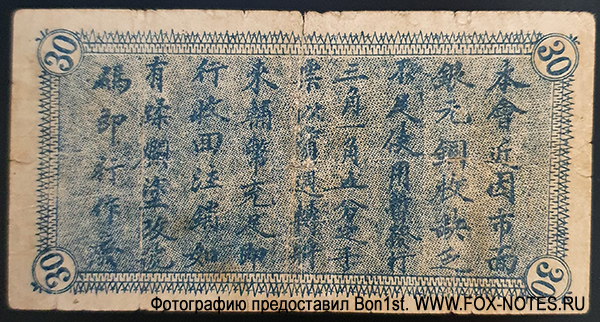 30
30
本會近因市面
銀元銅枚缺乏
不足使用暫發行
三角一角五分手
票以資週轉將
來輔幣充足即
行收回注銷如
有爛塗改號
碼即行作廢
30
30
Фотографию предоставил Bon1st. WWW.FOX-NOTES.RU